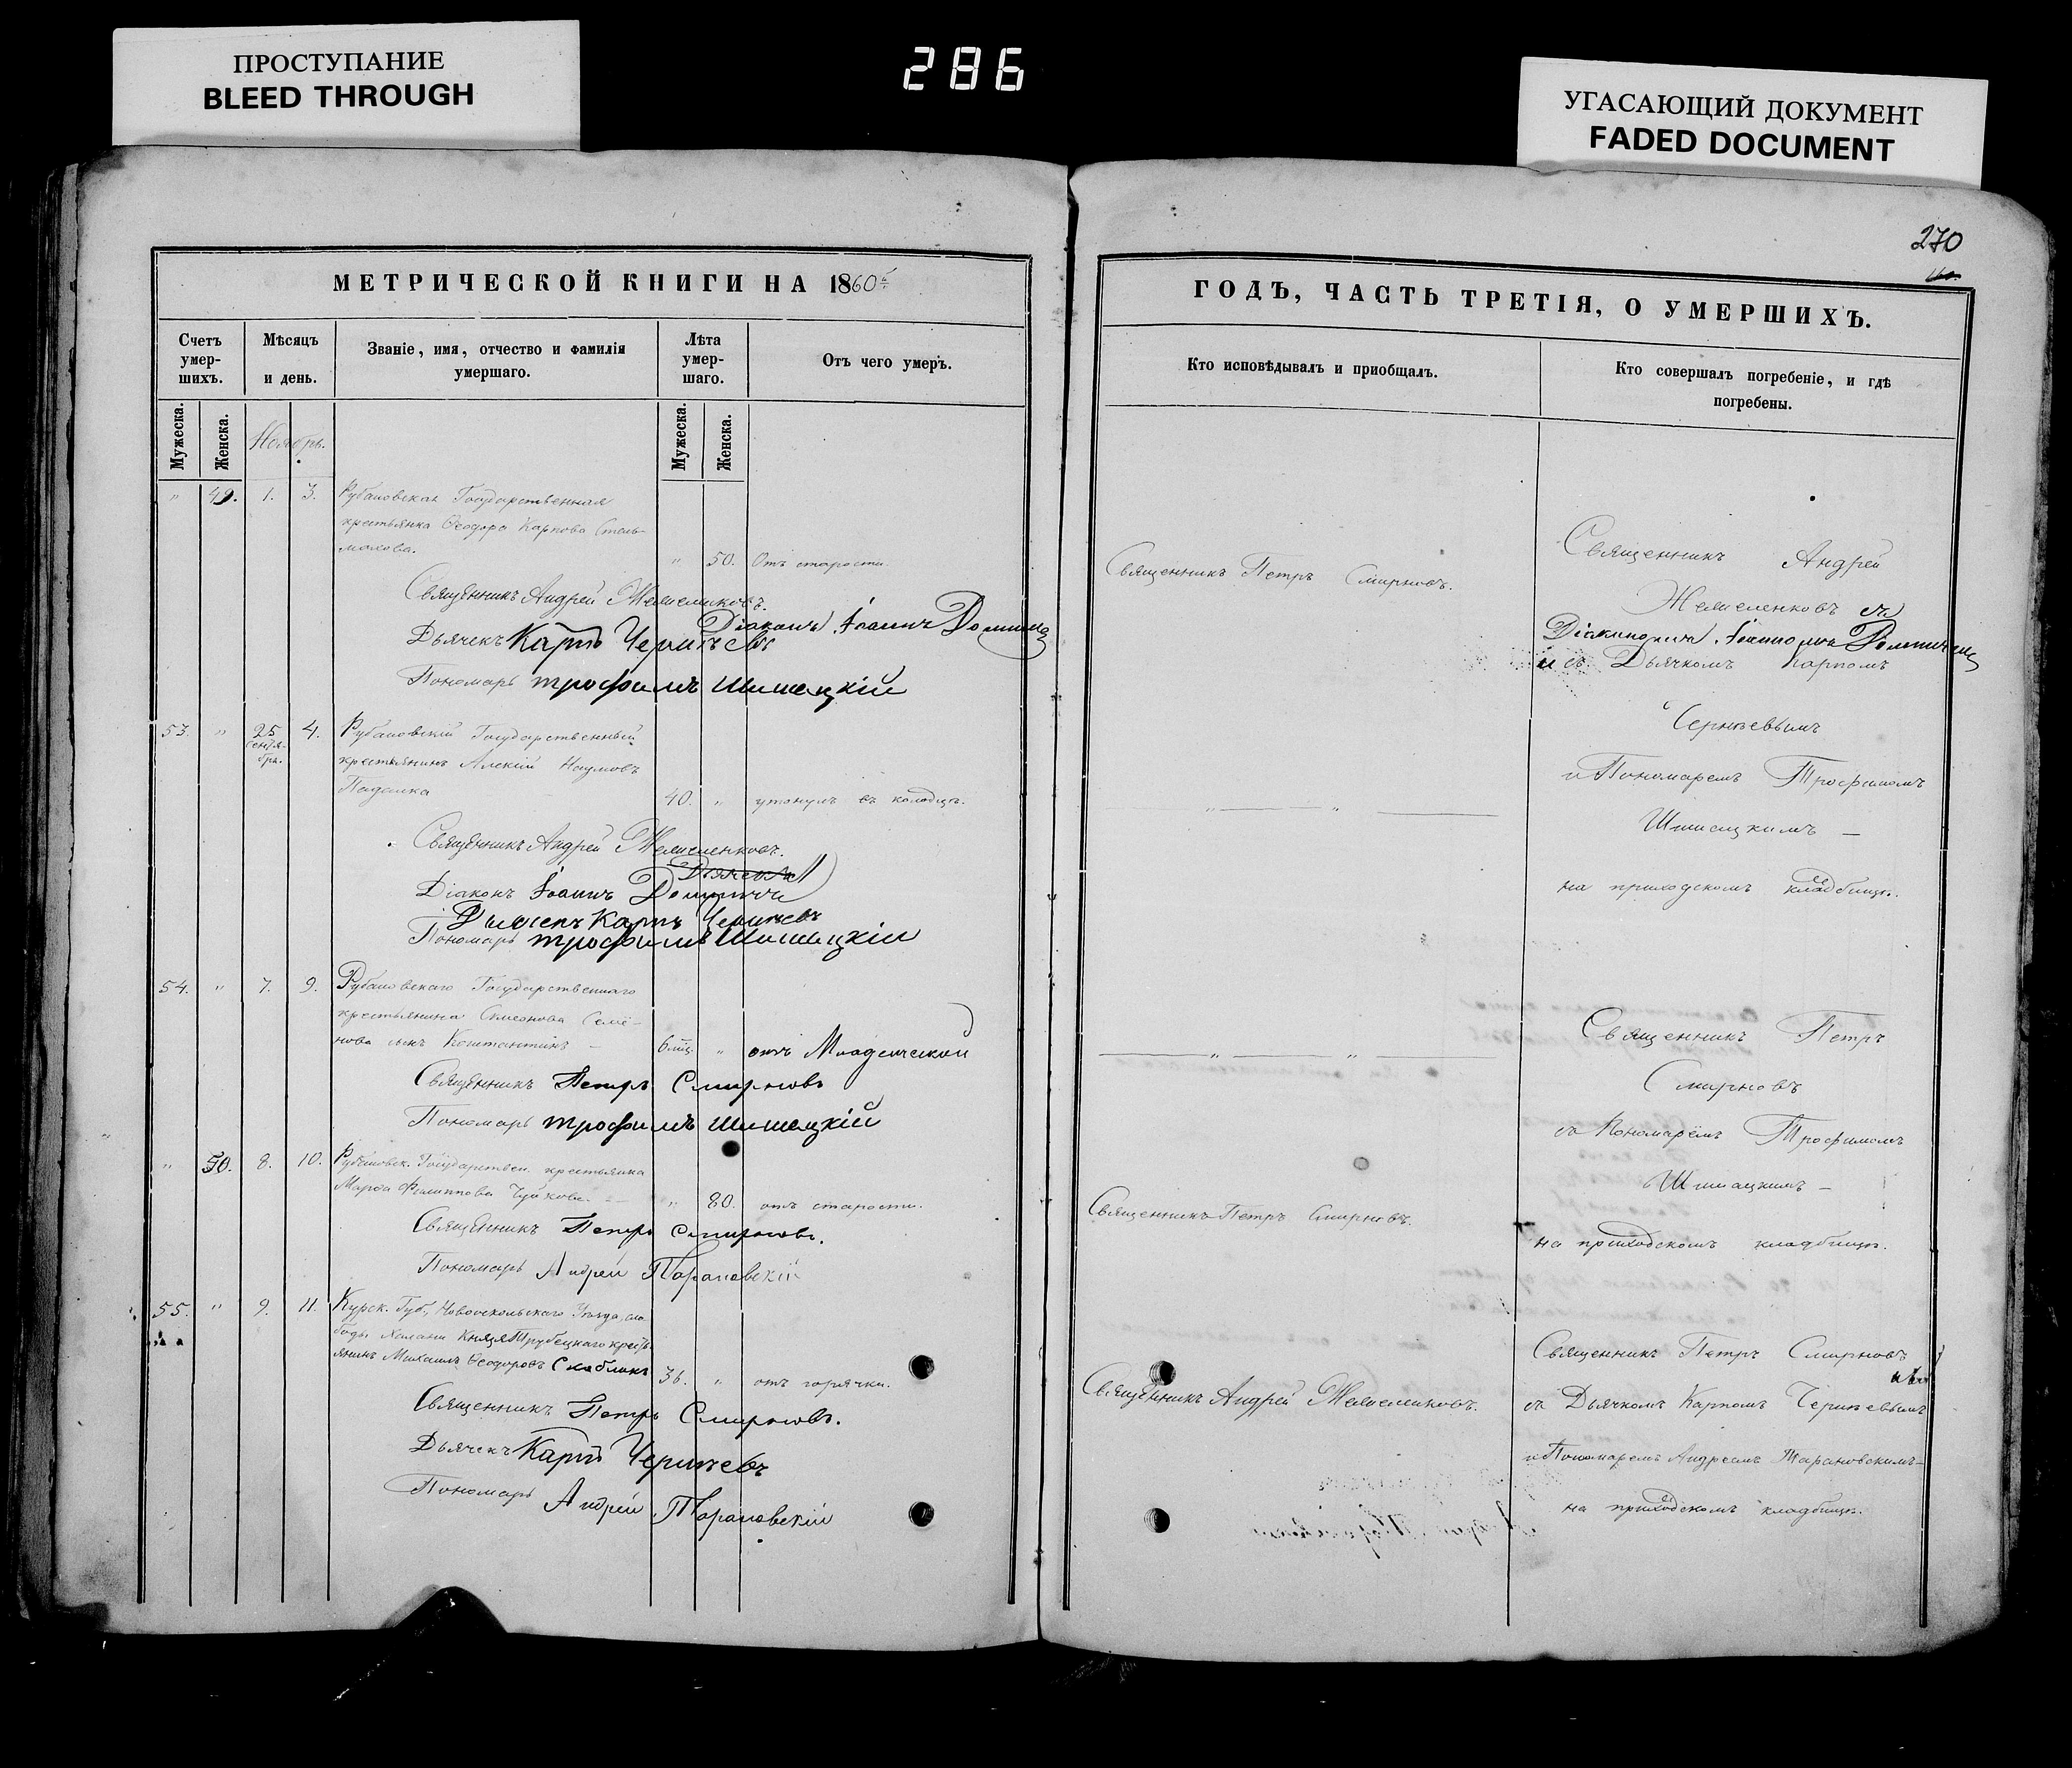 ПРОСТУПАНИЕ
BLEED THROUGH
286
УГАСАЮЩИЙ ДОКУМЕНТ
FADED DOCUMENT
МЕТРИЧЕСКОЙ КНИГИ НА 1860й
Счетъ умер-шихъ.
Мѣсяцъ и день.
Званіе, имя, отчество и фамилія умершаго.
Лѣта умер-шаго.
Отъ чего умеръ.
Мужеска. Женска. Ноябрь. Мужеска. Женска.
" 49. 1. 3. Рубановская Государственная
крестьянка Ѳеодора Карпова Стель-
махова.
" 50. Отъ старости.
Священникъ Андрей
Діаконъ Іоаннъ
Дьячекъ Карпъ Чернѣевъ
Пономарь Трофимъ Шишацкій
53. " 25 Сентя-бря. 4. Рубановскій Государственный
крестьянинъ Алексій Наумовъ
Падалка
40. " утонулъ въ колодцѣ.
Священникъ Андрей
Дьячекъ
Діаконъ Іоаннъ
Дьячекъ Карпъ Чернѣевъ
Пономарь Трофимъ Шишацкій
54. " 7. 9. Рубановскаго Государственнаго
крестьянина Симеонова Семе-
нова сынъ Константинъ –
6 мѣц. " отъ Младенческой
Священникъ Петръ Смирновъ
Пономарь Трофимъ Шишацкій
" 50. 8. 10. Рубановск. Государствен. крестьянка
Марѳа Филиппова Чуйкова.
" 80. отъ старости.
Священникъ Петръ Смирновъ.
Пономарь Андрей Тарановскій
55. " 9. 11. Курск. Губ., Новооскольскаго Уѣзда, сло-
боды Халани Князя Трубецкаго кресть-
янинъ Михаилъ Ѳеодоровъ
36. " отъ горячки.
Священникъ Петръ Смирновъ.
Дьячекъ Карпъ Чернѣевъ
Пономарь Андрей Тарановскій
270
ГОДЪ, ЧАСТЬ ТРЕТІЯ, О УМЕРШИХЪ.
Кто исповѣдывалъ и приобщалъ.
Кто совершалъ погребеніе, и гдѣ погребены.
Священникъ Петръ Смирновъ.
Священникъ Андрей
съ
Діакономъ Іоанномъ
и съ Дьячкомъ Карпомъ
Чернѣевымъ
и Пономаремъ Трофимомъ
Шишацкимъ –
на приходскомъ кладбищѣ.
Священникъ Петръ
Смирновъ
съ Пономарёмъ Трофимомъ
Шишацкимъ –
на приходскомъ кладбищѣ.
Священникъ Петръ Смирновъ.
Священникъ Петръ Смирновъ
Священникъ Андрей
съ Дьячкомъ Карпомъ Чернѣевымъ
и Пономаремъ Андреемъ Тарановскимъ –
на приходскомъ кладбищѣ.